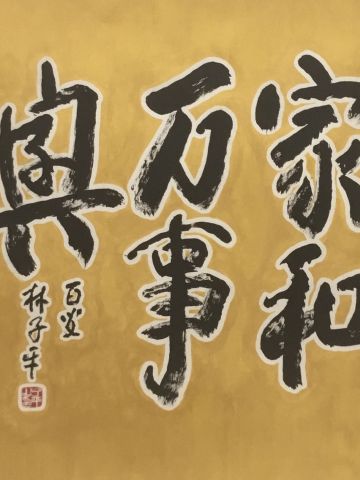 家和
万事
興
林子牛